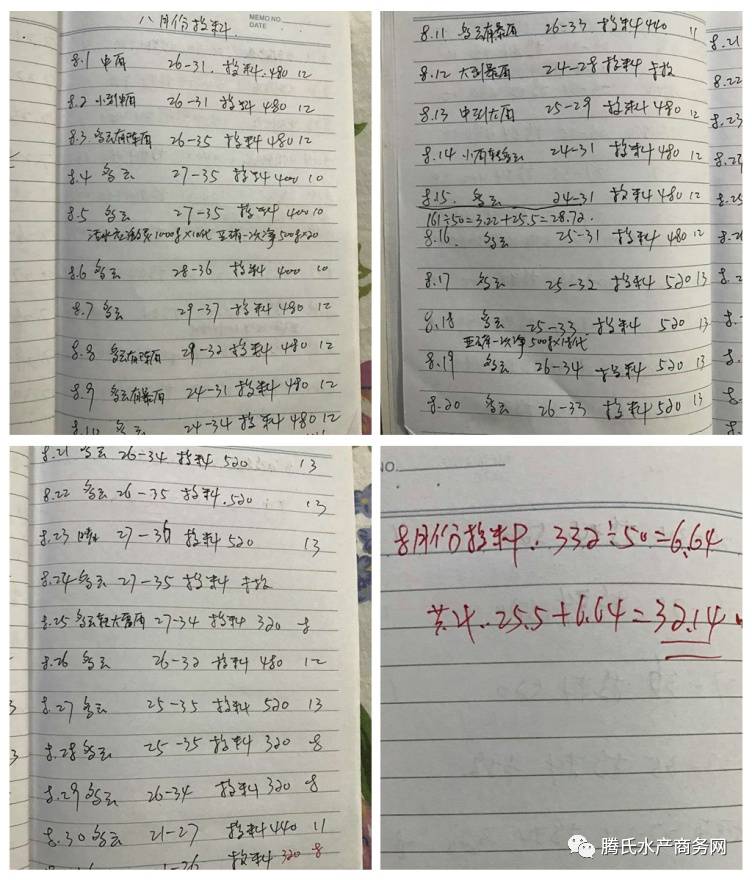 八月份投料
MEMO NO.
DATE
8.1 中雨 26-31. 投料.480 12
8.2 小到中雨 26-31 投料 480 12
8.3 多云有阵雨 26-35 投料480 12
8.4 多云 27-35 投料400 10
8.5 多云 27-35 投料400 10
8.6 多云 28-36 投料 400 10
8.7 多云 29-37 投料 480 12
8.8 多云有阵雨 29-32 投料480 12
8.9 多云有暴雨 24-31 投料480 12
8.10 多云 24-34 投料480 12
8.11 多云有暴雨 26-33 投料440 11
8.12 大到暴雨 24-28 投料 未投
8.13 中到大雨 25-29 投料480 12
8.14 小雨转多云 24-31 投料480 12
8.15. 多云 24-31 投料480 12
161÷50=3.22+25.5=28.72.
8.16. 多云 25-31 投料480 12
8.17 多云 25-32 投料 520 13
8.18 多云 25-33. 投料 520 13
8.19 多云 26-34 投料 520 13
8.20 多云 26-33 投料520 13
8.21
8.22
8.23
8.21 多云 26-34 投料520 13
8.22 多云 26-35 投料.520 13
8.23 晴 27-36 投料520 13
8.24 多云 27-35 投料 未投
8.25 多云转大雷雨 27-34 投料 320 8
8.26 多云 26-32 投料 480 12
8.27 多云 25-35 投料 520 13
8.28 多云 25-35 投料 320 8
8.29 多云 26-34 投料 320 8
8.30 多云 21-27 投料440 11
投料 320 8
NO.
8月份投料. 332÷50=6.64
共计..25.5+6.64=32.14
腾氏水产商务网